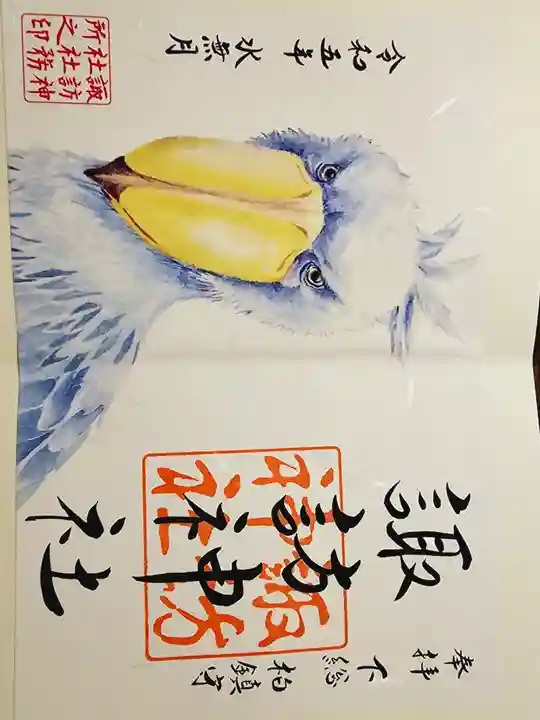 奉拝 下総 柏鎮守
諏訪神社
諏訪
神社
令和五年 水無月
諏訪神
社社務
所之印